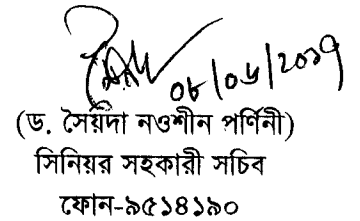 ০৮/০৬/২০১৭
(ড. সৈয়দা নওশীন পর্ণিনী)
সিনিয়র সহকারী সচিব
ফোন-৯৫১৪১৯০